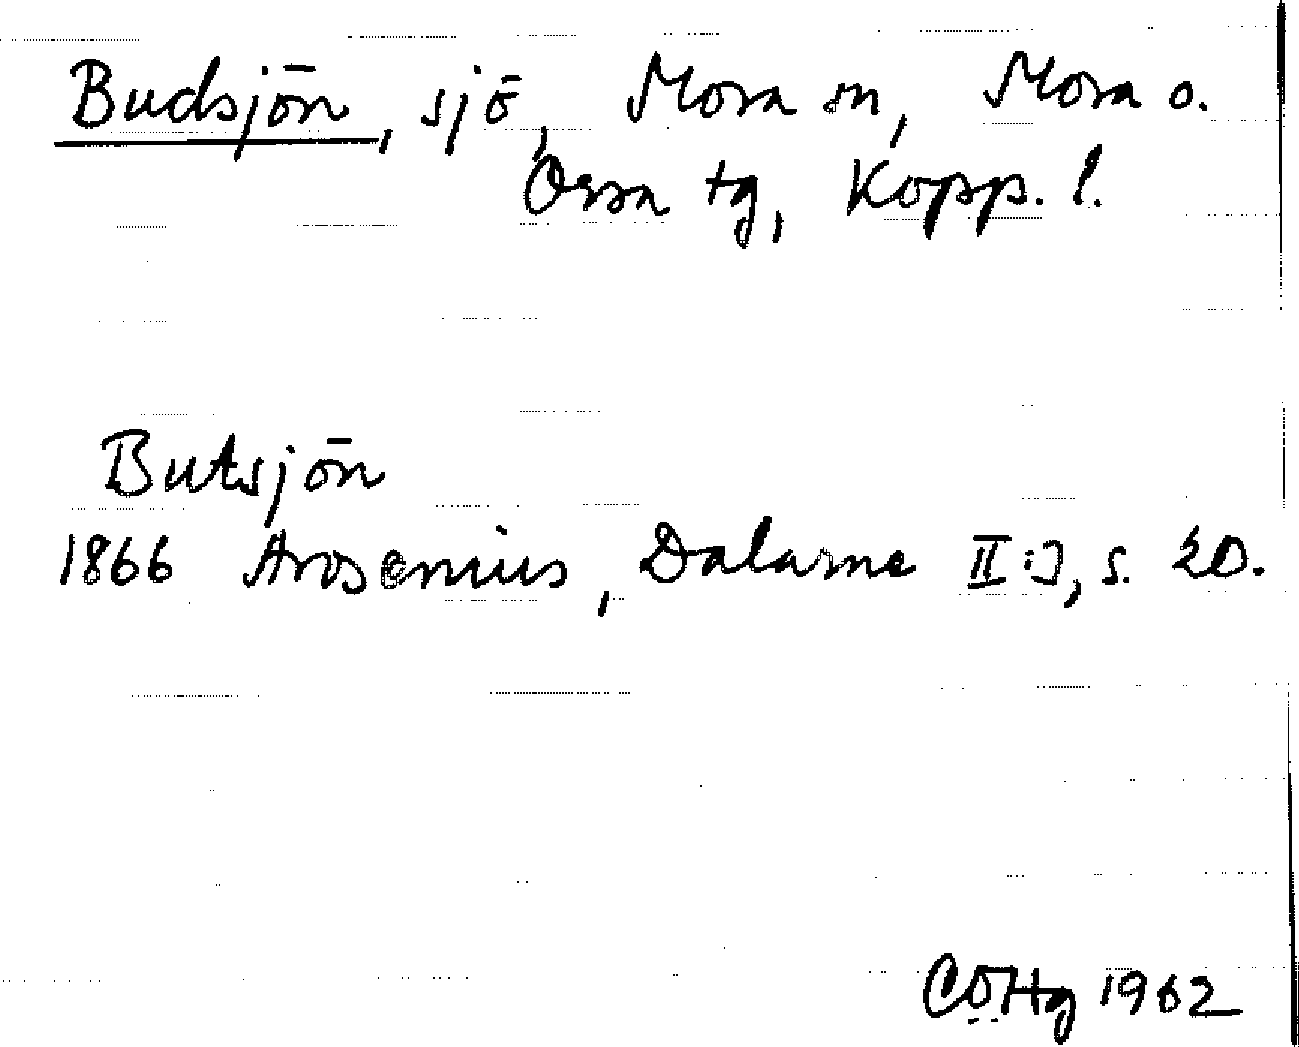 Budsjön, sjö, Mora sn, Mora o.
Orsa tg, Kopp. l.
Butsjön
1866 Arosenius, Dalarne II:3, s. 20.
COHg 1962